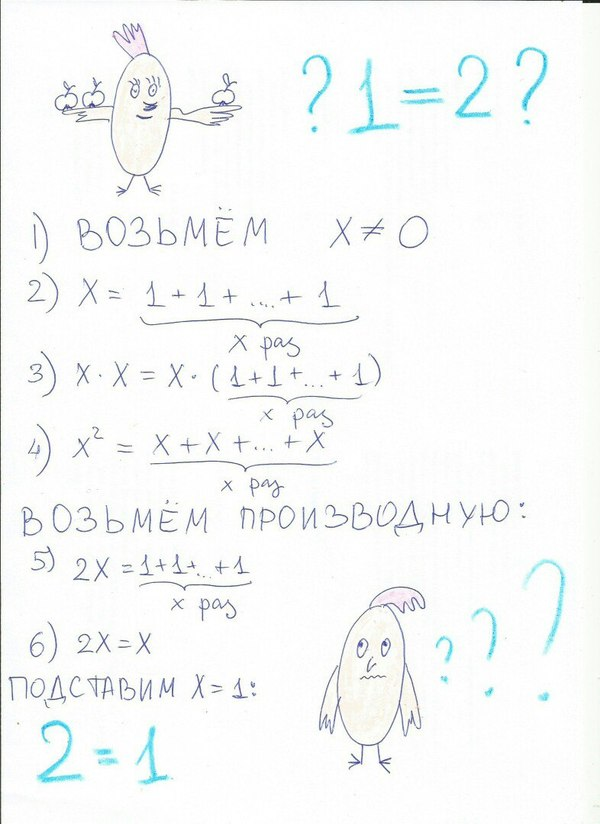 ? 1 = 2 ?
1) ВОЗЬМЁМ X ≠ 0
2) X = 1 + 1 + .... + 1
x раз
3) X · X = X · (1 + 1 + ... + 1)
x раз
4) X² = X + X + ... + X
x раз
ВОЗЬМЁМ ПРОИЗВОДНУЮ:
5) 2X = 1+1+...+1
x раз
6) 2X = X
ПОДСТАВИМ X = 1:
2 = 1
? ? ?